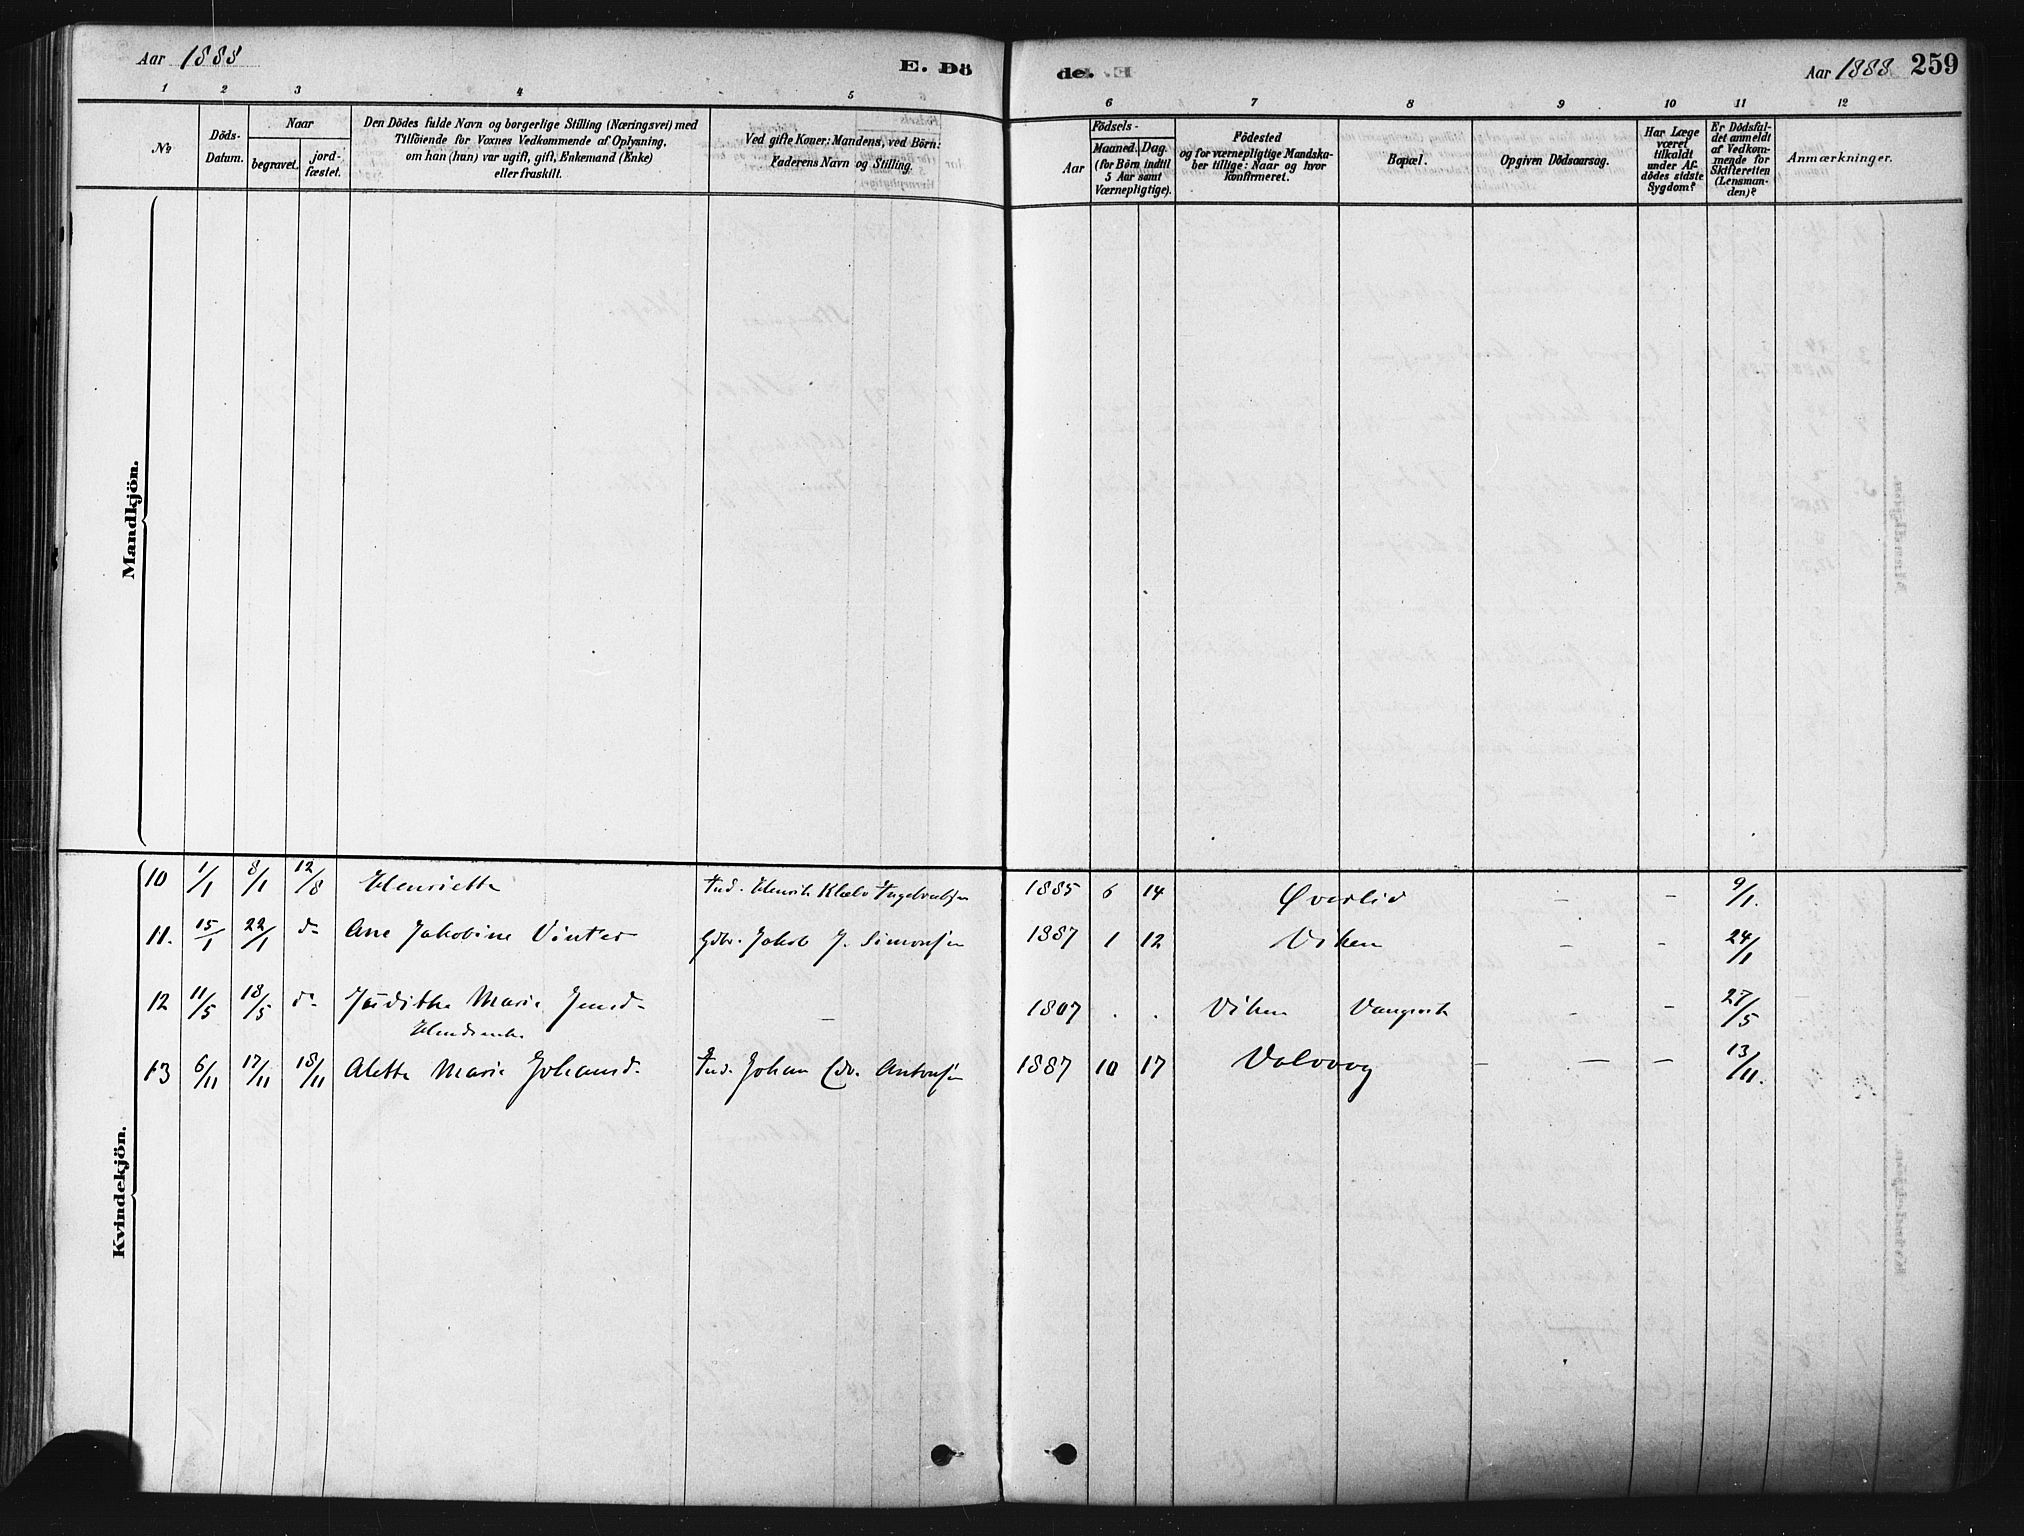 Aar 1888
E. Dö
de.
Aar 1888
259
1 2 3 4 5 6 7 8 9 10 11 12
No
Döds-
Datum.
Naar
begravet.
jord-
fæstet.
Den Dödes fulde Navn og borgerlige Stilling (Næringsvei) med
Tilföiende for Voxnes Vedkommende af Oplysning,
om han (hun) var ugift, gift, Enkemand (Enke)
eller fraskilt.
Ved gifte Koner: Mandens, ved Börn:
Faderens Navn og Stilling.
Aar
Födsels-
Maaned. Dag.
(for Börn indtil
5 Aar samt
Værnepligtige).
Födested
og for værnepligtige Mandska-
ber tillige: Naar og hvor
konfirmeret.
Bopæl.
Opgiven Dödsaarsag.
Har Læge
været
tilkaldt
under Af-
dödes sidste
Sygdom?
Er Dödsfal-
det anmeldt
af Vedkom-
mende for
Skifteretten
(Lensman-
den)?
Anmærkninger.
Mandkjön.
Kvindekjön.
10 1/1 8/1 12/8 Henriette Ind. Henrik Klælv Ingebrigtsen 1885 6 14 Øverlid — — 9/1.
11. 15/1 22/1 do Ane Jakobine Vinter Gdbr. Jakob J. Simonsen 1887 1 12 Viken — — 24/1
12 11/5 18/5 do Judithe Marie Jensd. — 1807 . . Viken Vangsvik — — 27/5
13 6/11 17/11 18/11 Alette Marie Johansd. Ind. Johan Edv. Antonsen 1887 10 17 Valvaag — — — 13/11.